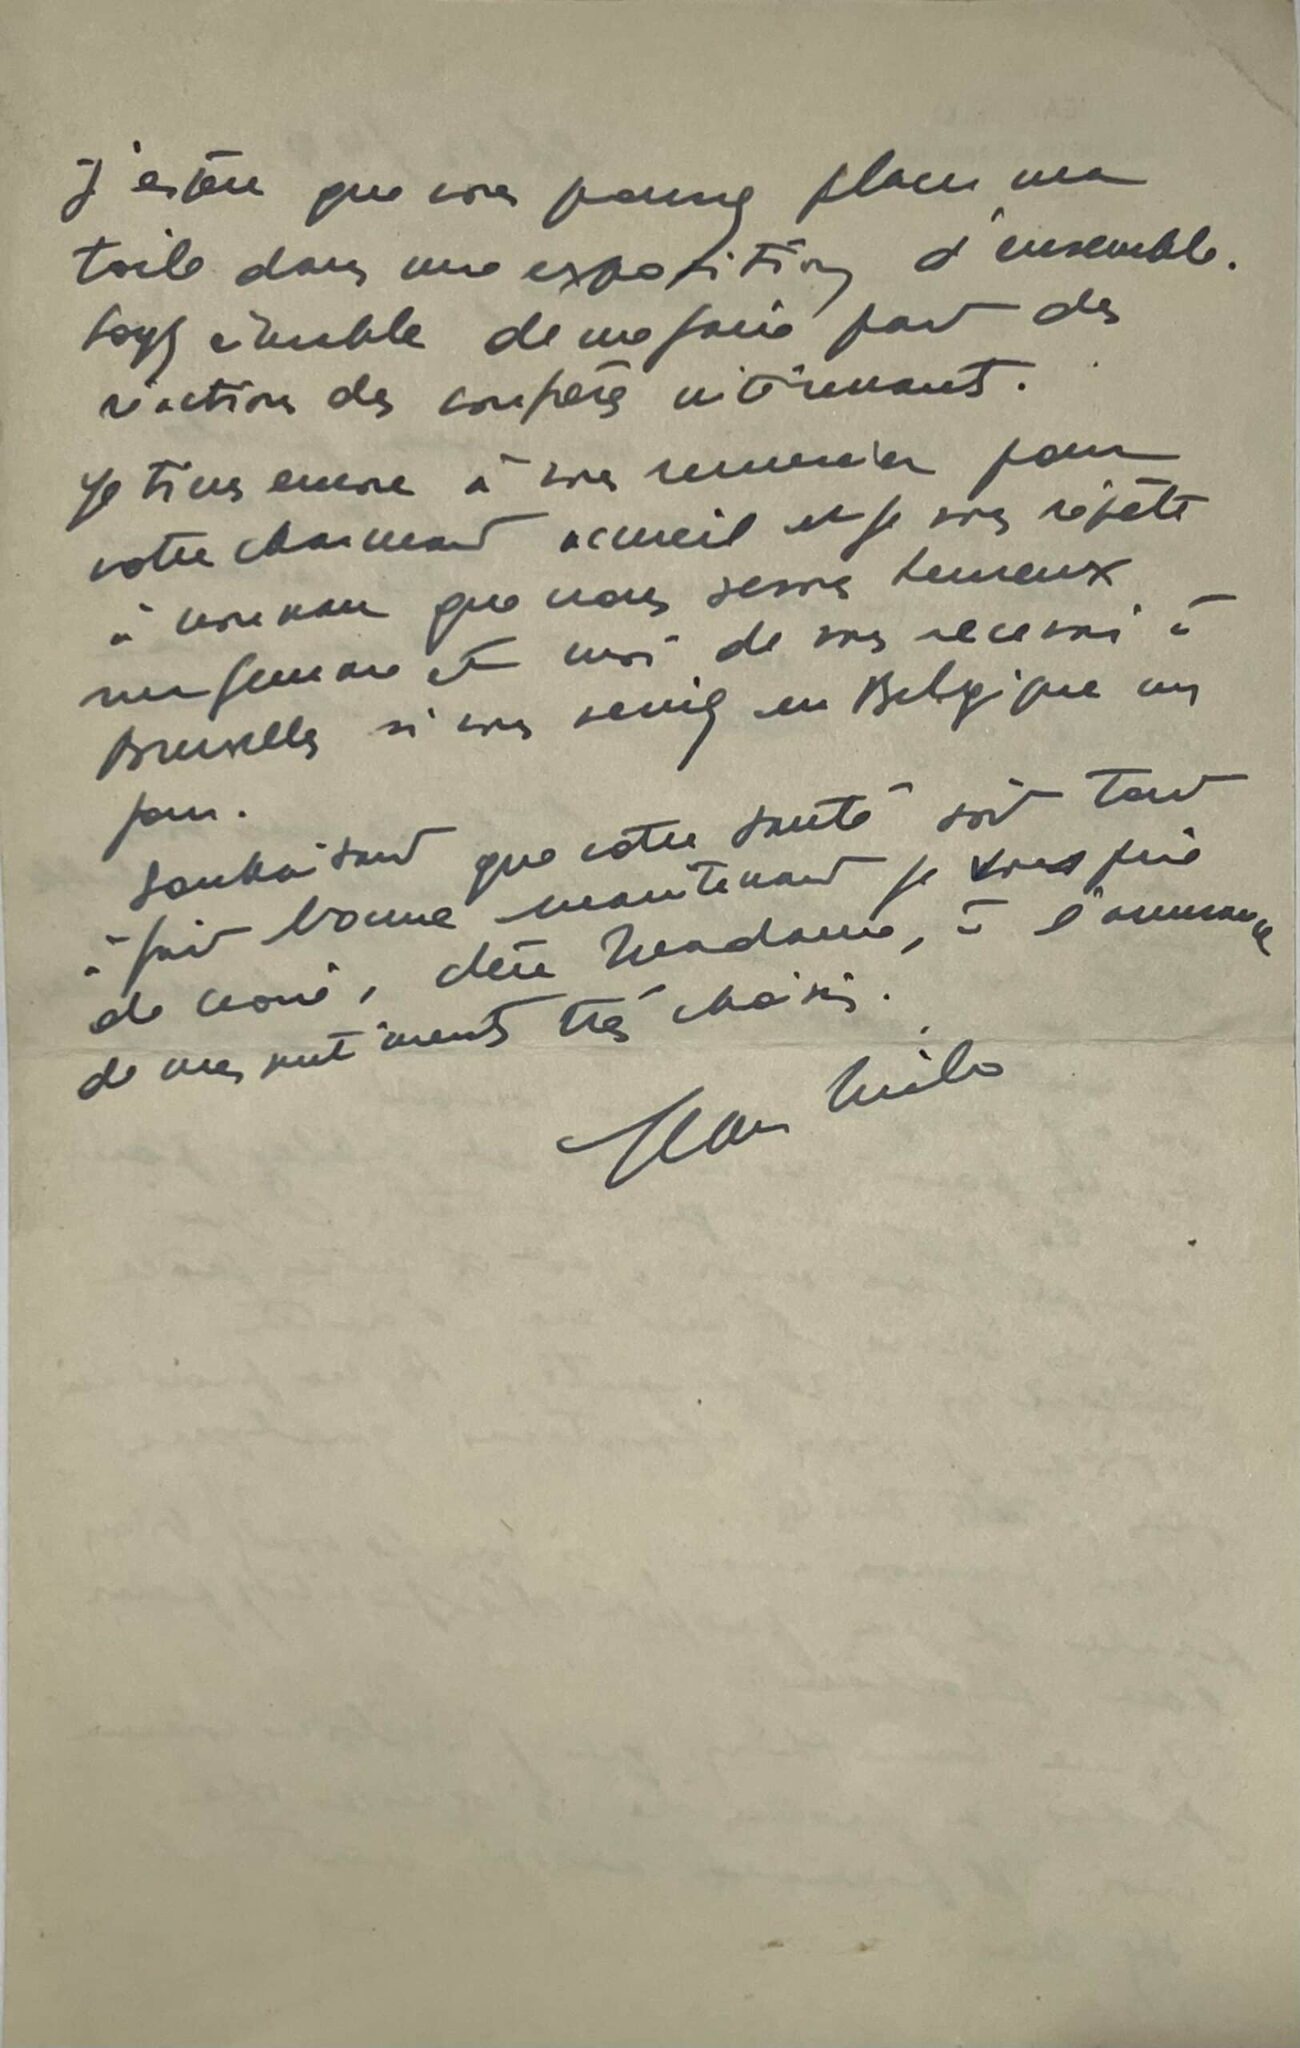 J'espère que vous pourrez placer ma
toile dans une exposition d'ensemble.
Soyez aimable de me faire part des
réactions des confrères intéressants.
Je tiens encore à vous remercier pour
votre charmant accueil et je vous répète
à nouveau que nous serons heureux
ma femme et moi de vous recevoir à
Bruxelles si vous veniez en Belgique un
jour.
Souhaitant que votre santé soit tout
à fait bonne maintenant je vous prie
de croire, chère Madame, à l'assurance
de mes sentiments très choisis.
Jean Milo